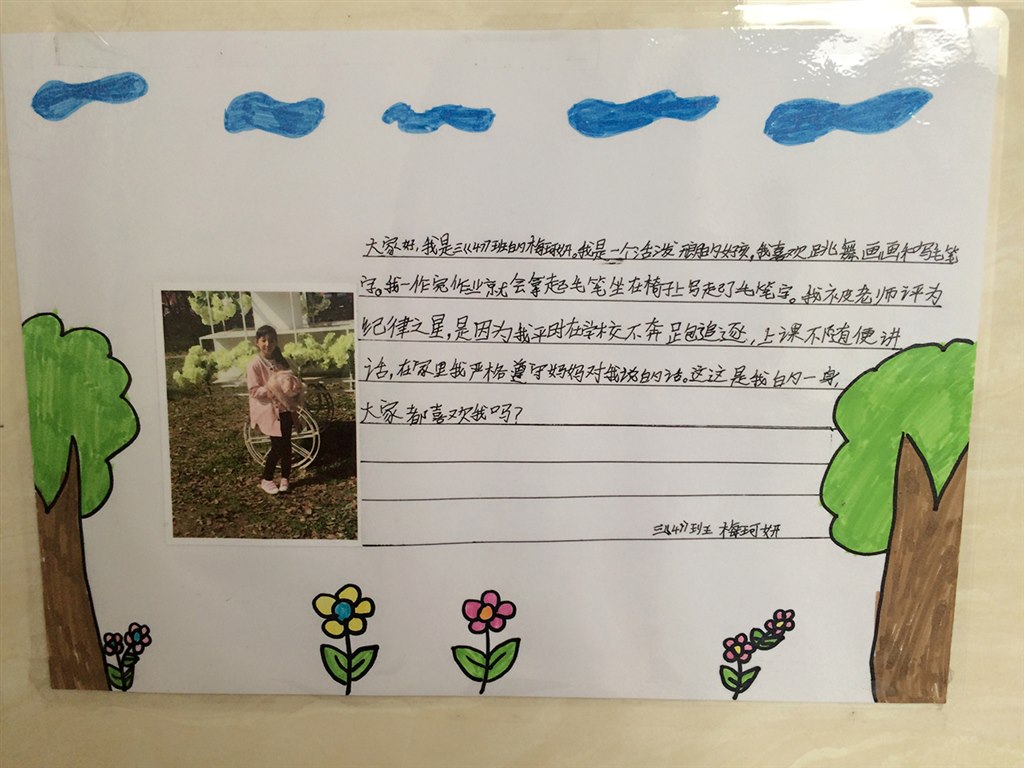 大家好,我是三《4》班的梅珂妍。我是一个活泼开朗的女孩,我喜欢跳舞画画和写毛笔
字。我一作完作业就会拿起毛笔坐在椅子上写起了毛笔字。我被老师评为
纪律之星,是因为我平时在学校不奔跑追逐,上课不随便讲
话,在家里我严格遵守妈妈对我说的话。这这是我的一身,
大家都喜欢我吗?
三《4》班 梅珂妍